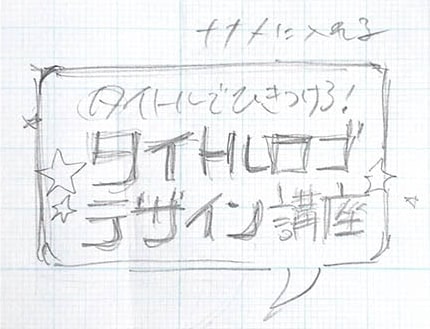 ナナメに入れる
タイトルでひきつけろ!
タイトルロゴ
デザイン講座